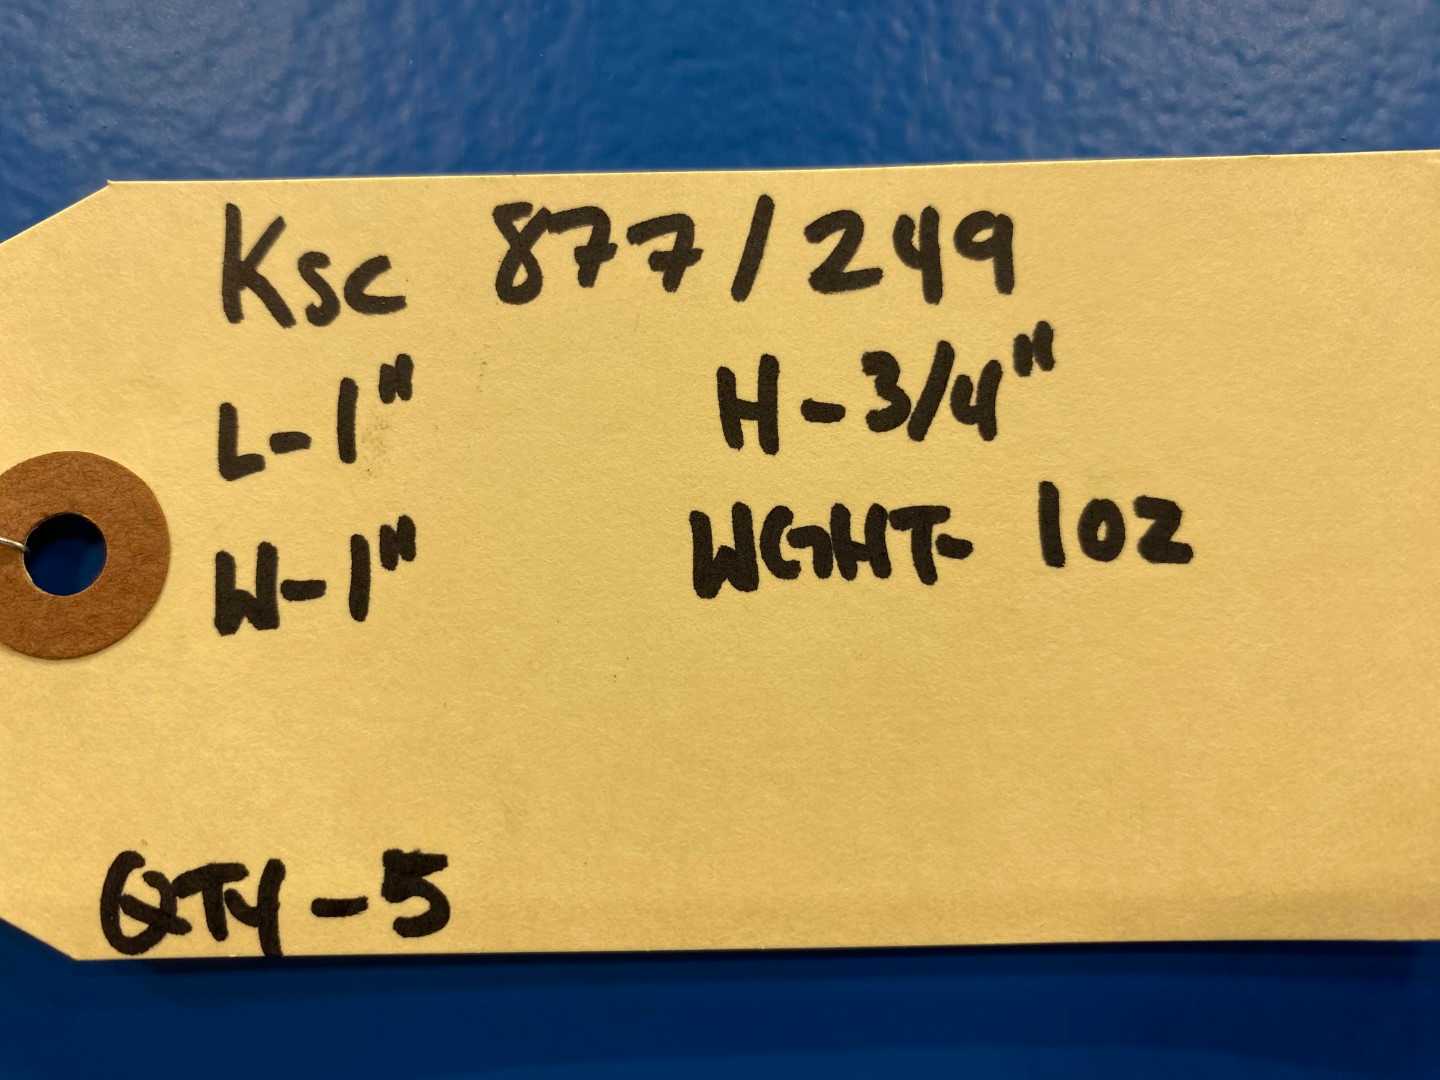 Ksc 877/249
L-1" H-3/4"
W-1" WGHT- 1oz
QTY-5